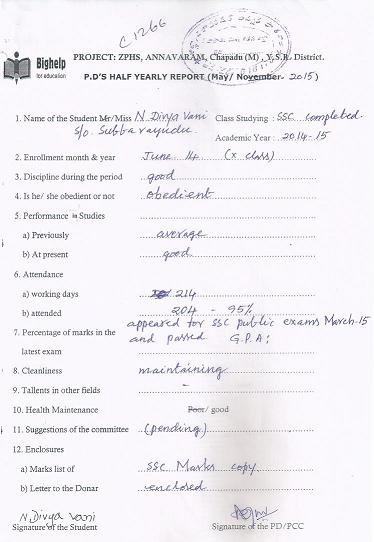 C1266
Bighelp
for education
PROJECT: ZPHS, ANNAVARAM, Chapadu (M), Y.S.R. District.
P.D'S HALF YEARLY REPORT (May/ November- 2015)
1. Name of the Student Mr/Miss N. Divya Vani Class Studying : SSC completed
S/o. Subbarayudu. Academic Year : 2014-15
2. Enrollment month & year June 14 (X class)
3. Discipline during the period good
4. Is he/ she obedient or not obedient
5. Performance in Studies
a) Previously average
b) At present good
6. Attendance
a) working days 214
b) attended 204 - 95%
appeared for SSC public exams March-15
7. Percentage of marks in the and passed G.P.A:
latest exam
8. Cleanliness maintaining
9. Tallents in other fields -
10. Health Maintenance Poor/ good
11. Suggestions of the committee (pending)
12. Enclosures
a) Marks list of SSC Marks copy
b) Letter to the Donar enclosed
N. Divya Vani
Signature of the Student Signature of the PD/PCC